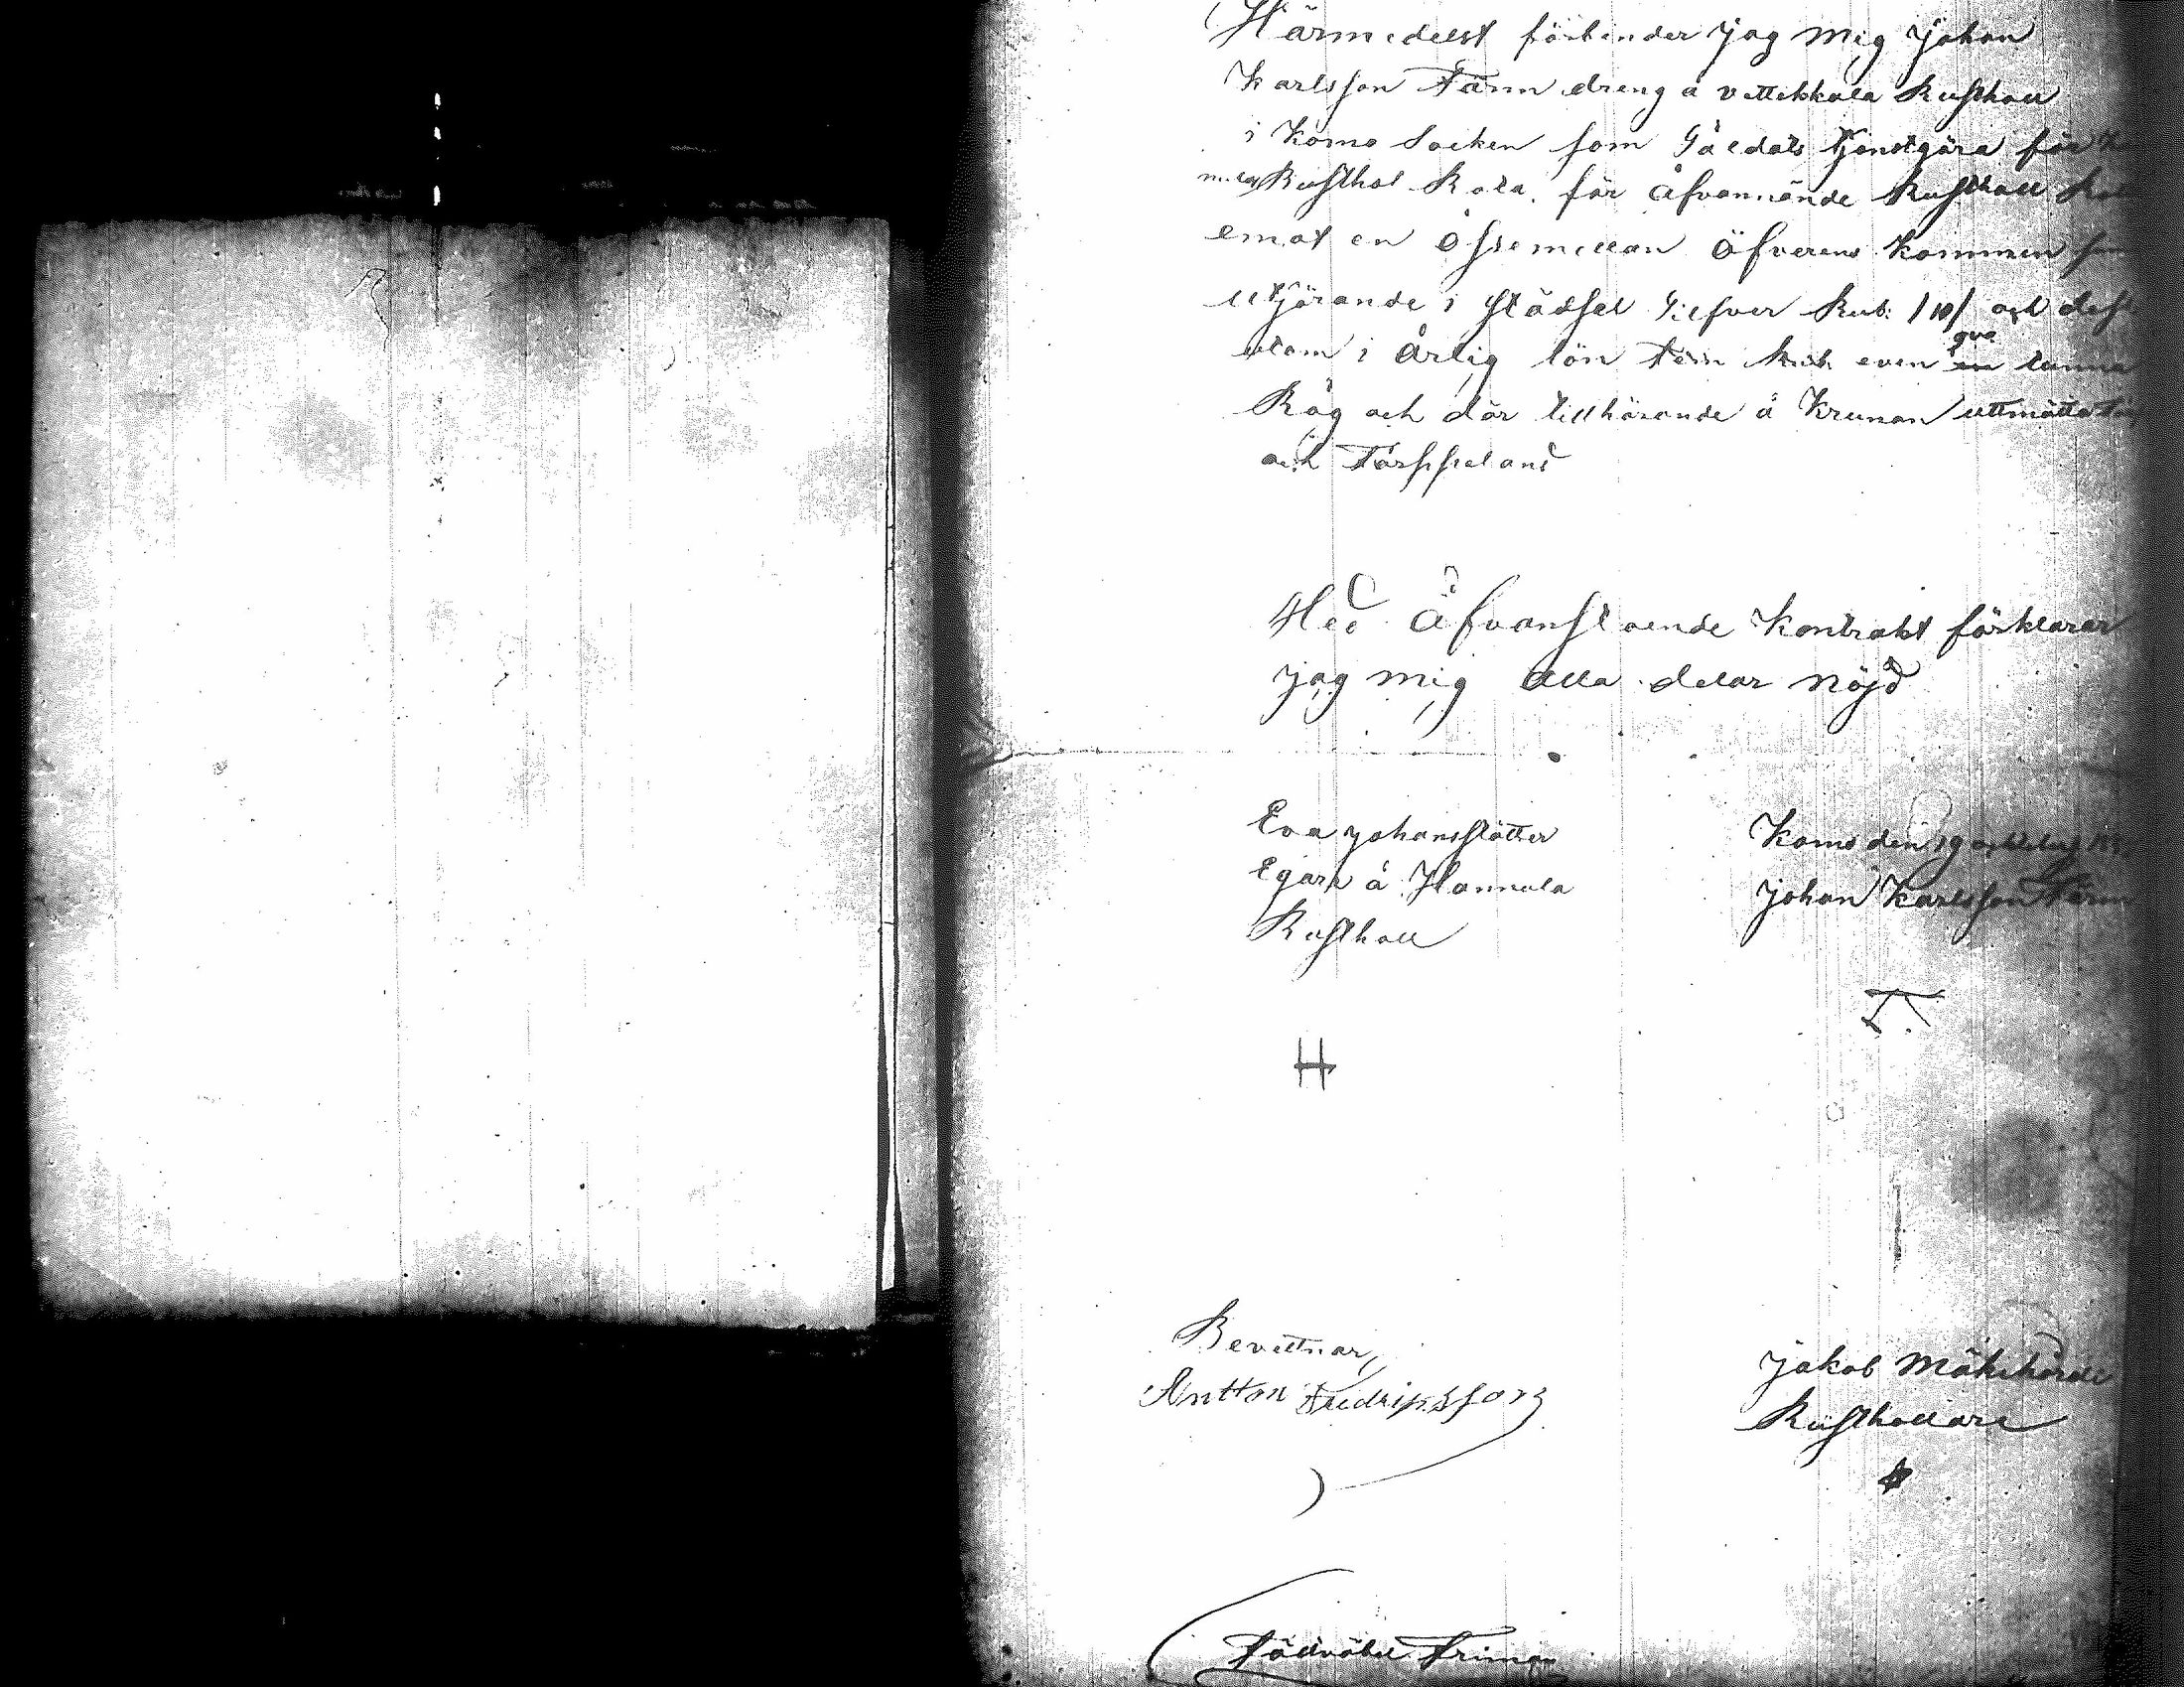 Härmedelst förbinder jag mig Johan
Karlsson Färm dreng å vittikkala Rusthall
i Komo Socken som Såldats tjenstgöra för
Rusthol Rota för åfvannände Rusthall
emot en ossemellan öfverens kommen
utjörande i städsel Silfver Rub. /10/ och
utom i årlig lön fem Rub. even tunna
Råg och där tillhörande å Krunan uttmätta
och Torppeland
Med åfvanstaende Kontrakt förklarar
jag mig alla delar nöjd
Eva Johansslötter
Egare å Hannula
Rusthall
Komo den 19
Johan Karlsson Färm
H
Bevittnar,
Antton Fredriksson
Jakob
Rusthallare
Friman